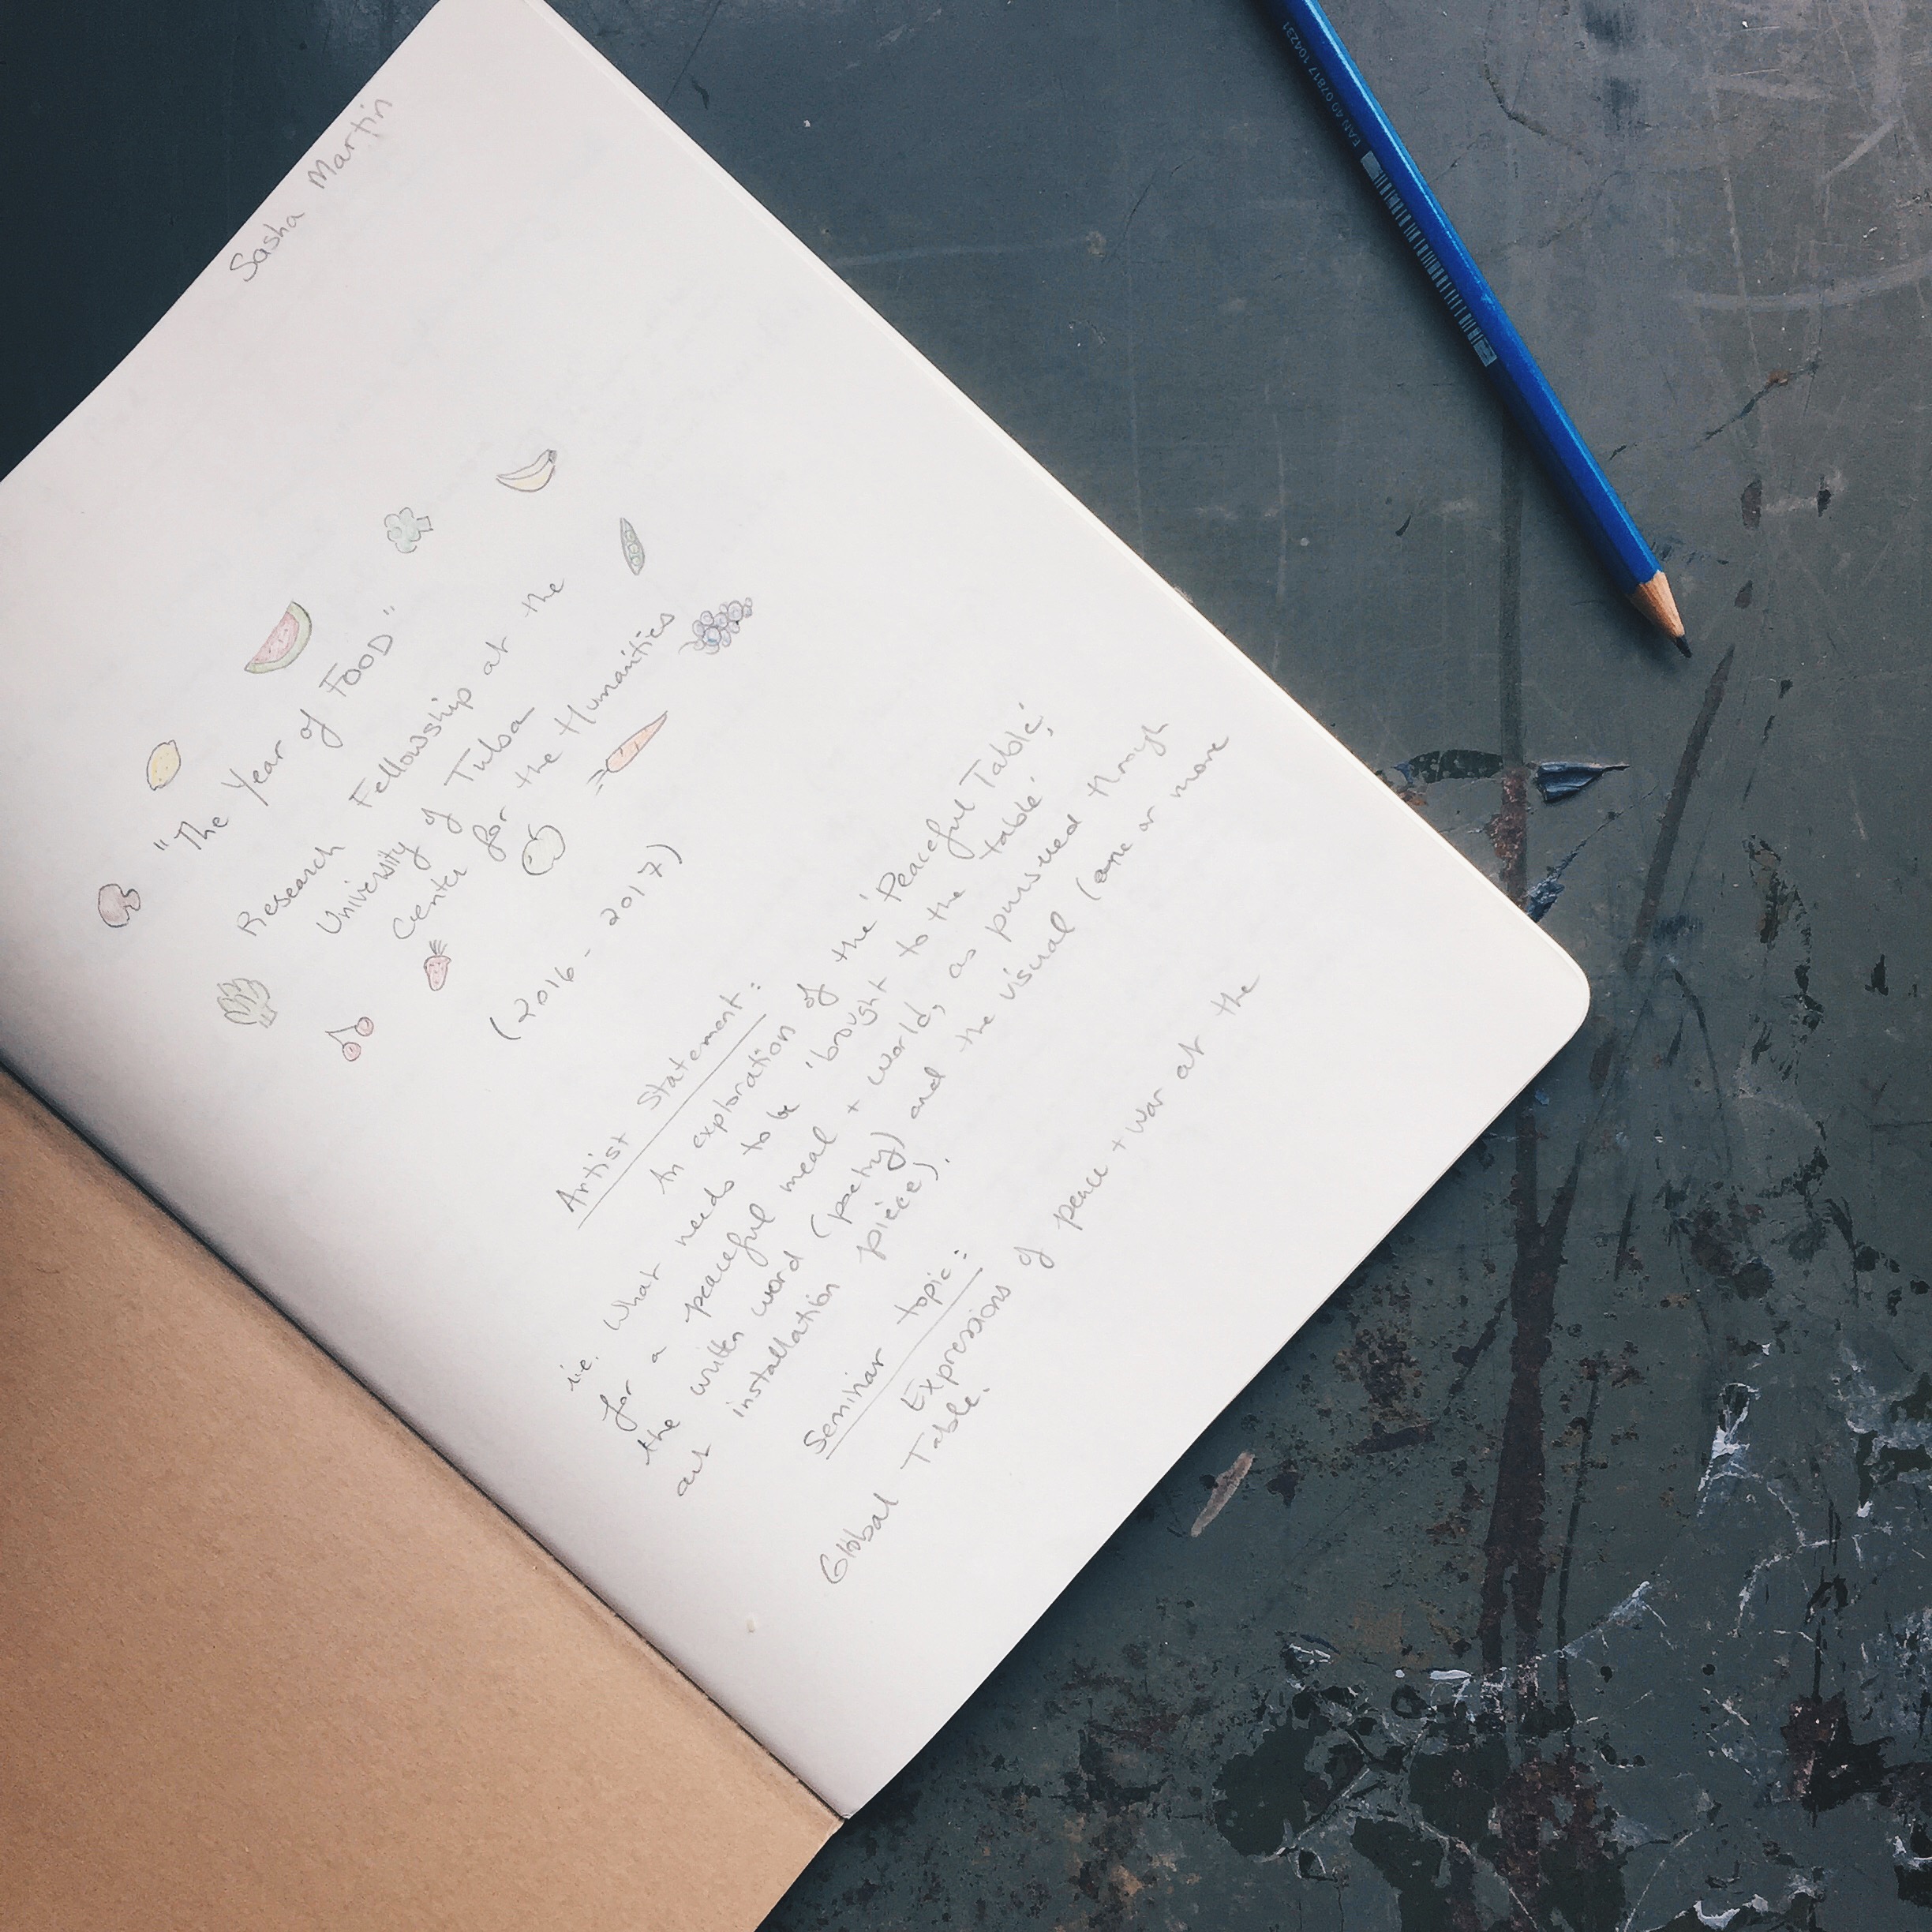 Sasha Martin
"The Year of FOOD"
Research Fellowship at the
University of Tulsa
Center for the Humanities
(2016 - 2017)
Artist Statement:
An exploration of the 'Peaceful Table',
i.e. what needs to be 'brought to the table'
for a peaceful meal + world, as pursued through
the written word (poetry) and the visual (one or more
art installation piece).
Seminar topic:
Expressions of peace + war at the
Global Table.
EAN 40 07817 104231